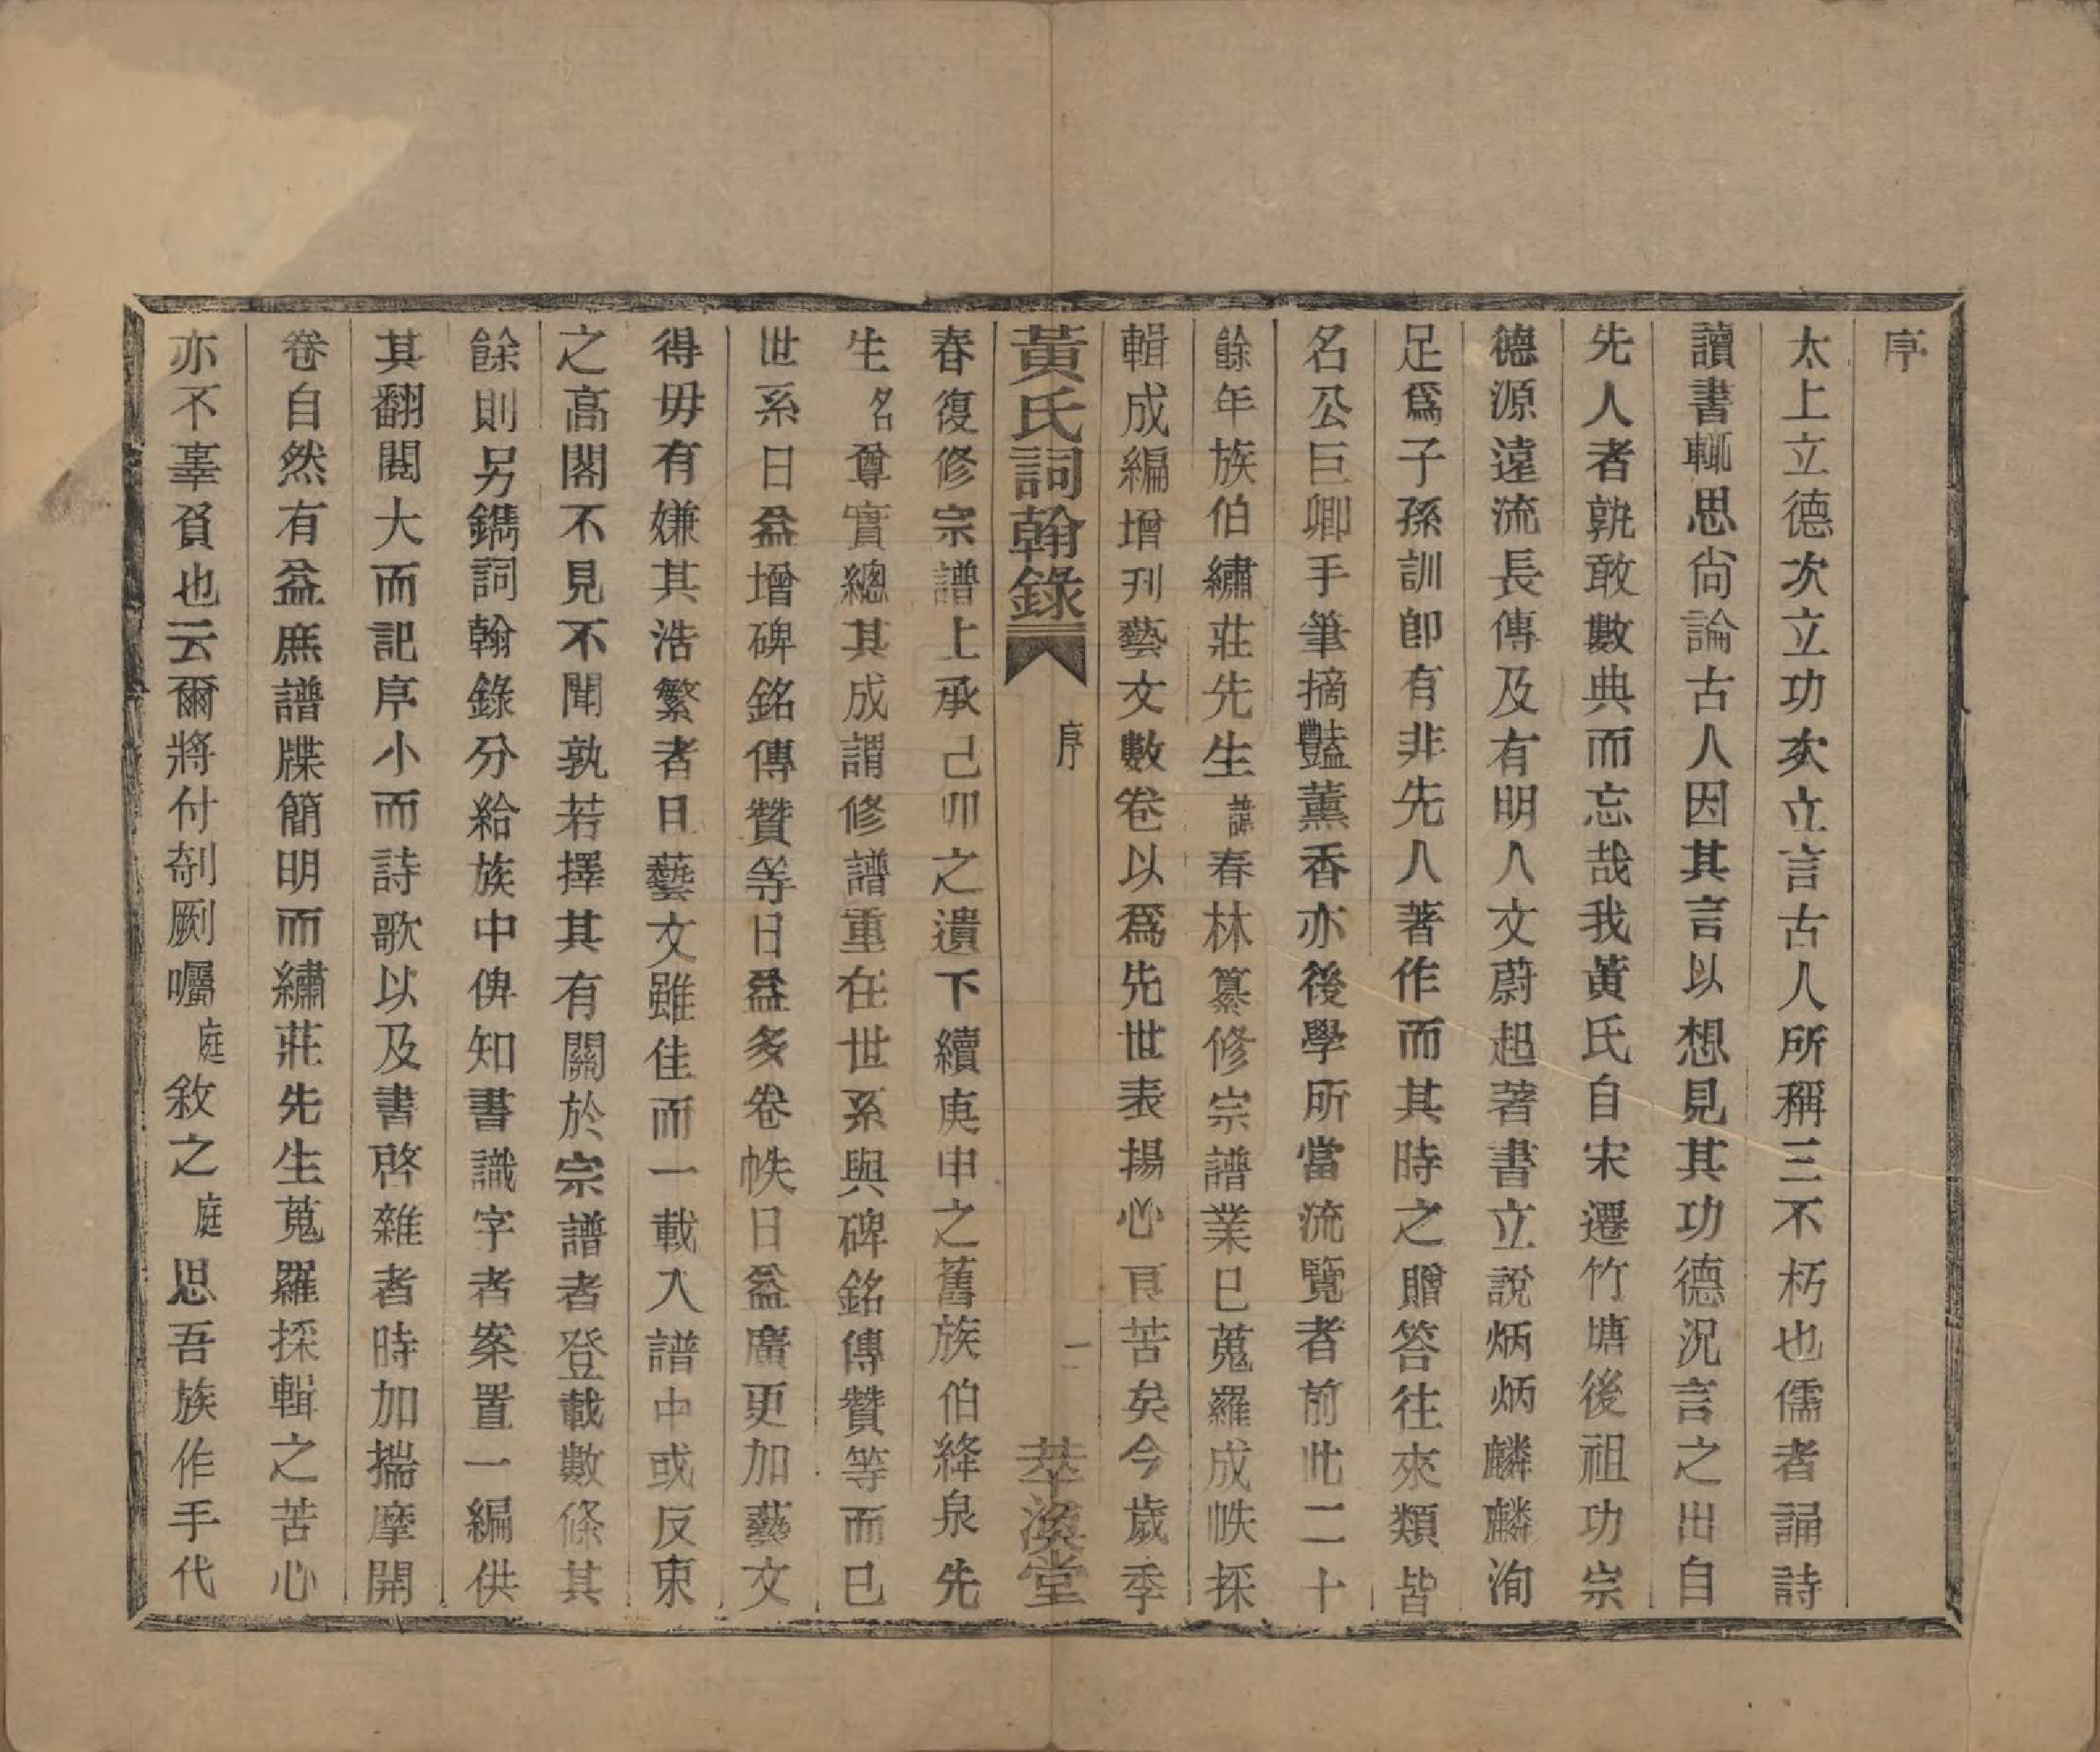 序
太上立德次立功次立言古人所稱三不朽也儒者誦詩
讀書輒思尙論古人因其言以想見其功德況言之出自
先人者孰敢數典而忘哉我黃氏自宋遷竹塘後祖功宗
德源遠流長傳及有明人文蔚起著書立說炳炳麟麟洵
足爲子孫訓卽有非先人著作而其時之贈答往來類皆
名公巨卿手筆摘豔薰香亦後學所當流覽者前此二十
餘年族伯繡莊先生諱春林纂修宗譜業已蒐羅成帙採
輯成編增刊藝文數卷以爲先世表揚心良苦矣今歲季
黃氏詞翰錄
序
一
萃渙堂
春復修宗譜上承己卯之遺下續庚申之舊族伯絳泉先
生名尊實總其成謂修譜重在世系與碑銘傳贊等而已
世系日益增碑銘傳贊等日益多卷帙日益廣更加藝文
得毋有嫌其浩繁者且藝文雖佳而一載入譜中或反束
之高閣不見不聞孰若擇其有關於宗譜者登載數條其
餘則另鐫詞翰錄分給族中俾知書識字者案置一編供
其翻閱大而記序小而詩歌以及書啓雜著時加揣摩開
卷自然有益庶譜牒簡明而繡莊先生蒐羅採輯之苦心
亦不辜負也云爾將付剞劂囑庭敘之庭思吾族作手代